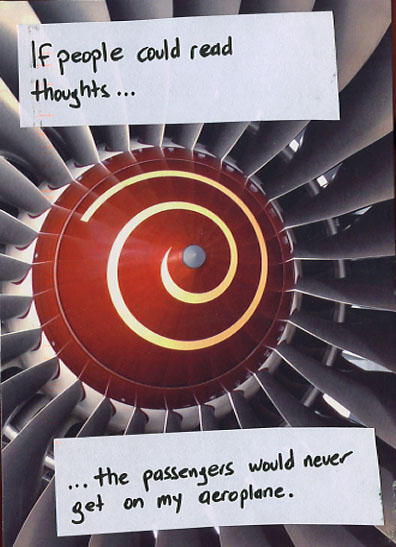 If people could read
thoughts...
...the passengers would never
get on my aeroplane.